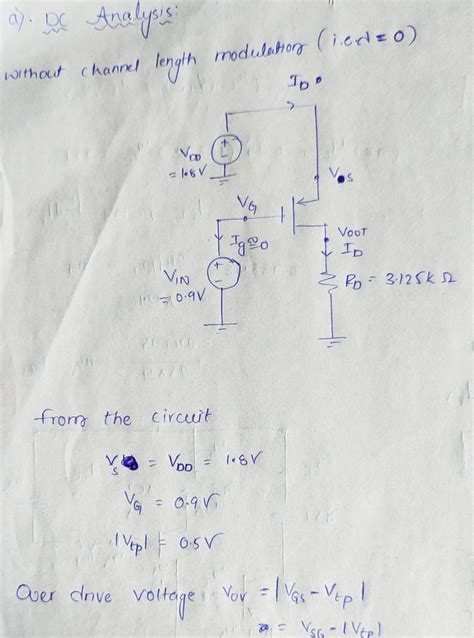 a). DC Analysis:
without channel length modulation (i.e λ = 0)
I_D
V_DD
= 1.8V
V_S
V_G
I_g ≈ 0
V_OUT
I_D
V_IN
= 0.9V
R_D = 3.125k Ω
from the circuit
V_S = V_DD = 1.8V
V_G = 0.9V
|V_tp| = 0.5V
Over drive voltage V_OV = |V_GS - V_tp|
= V_SG - |V_tp|